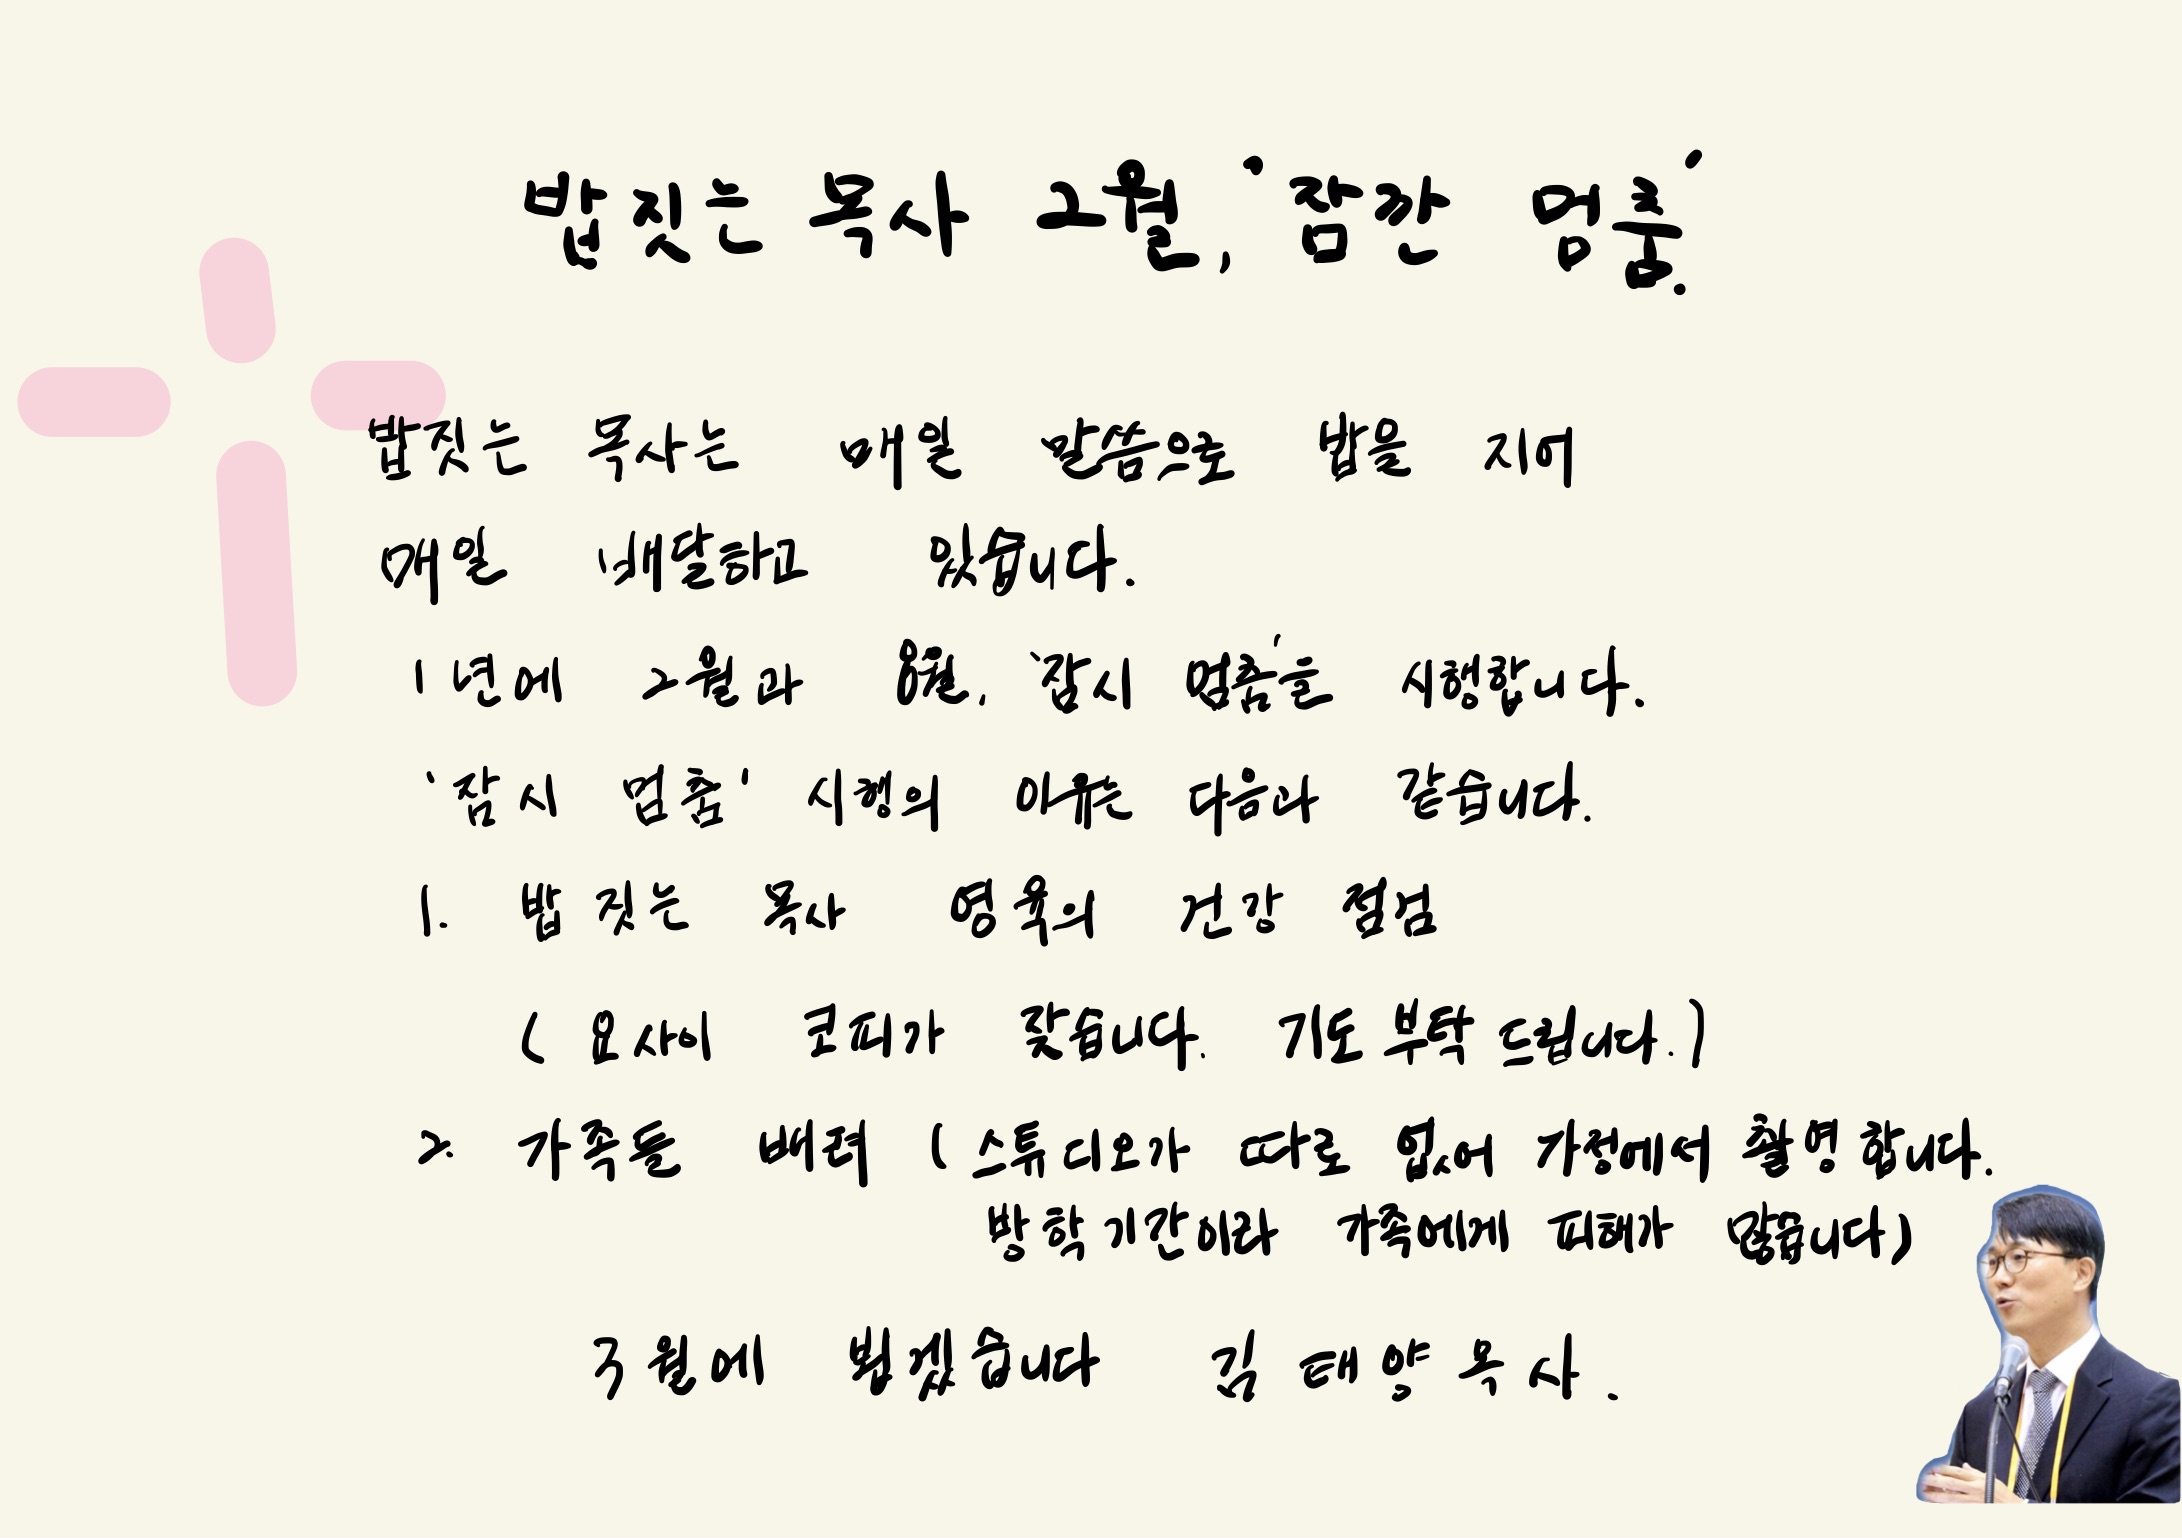 밥짓는 목사 2월, '잠깐 멈춤.'
밥짓는 목사는 매일 말씀으로 밥을 지어
매일 배달하고 있습니다.
1년에 2월과 8월, '잠시 멈춤'을 시행합니다.
'잠시 멈춤' 시행의 이유는 다음과 같습니다.
1. 밥짓는 목사 영육의 건강 점검
( 요사이 코피가 잦습니다. 기도 부탁드립니다.)
2. 가족들 배려 ( 스튜디오가 따로 없어 가정에서 촬영합니다.
방학기간이라 가족에게 피해가 많습니다)
3월에 뵙겠습니다 김태양목사.